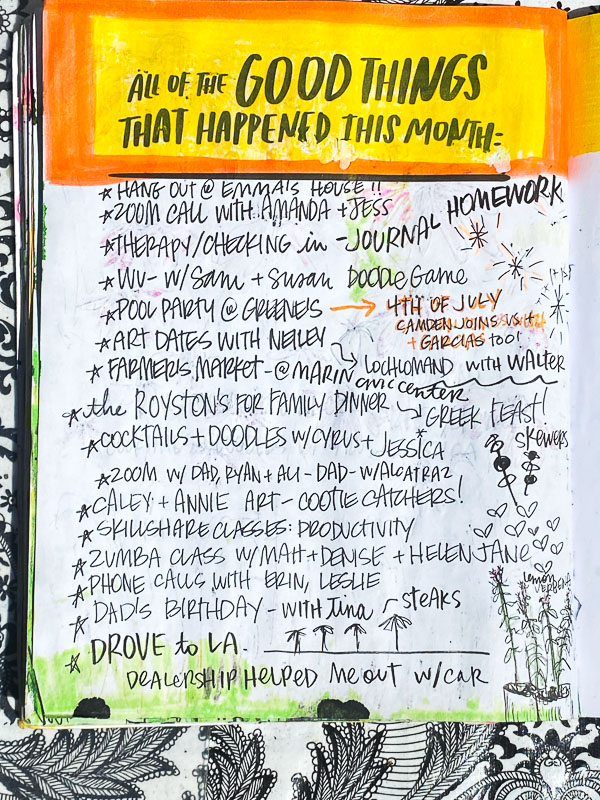 ALL OF THE GOOD THINGS
THAT HAPPENED THIS MONTH:
HANG OUT @ EMMA'S HOUSE!!
ZOOM CALL WITH AMANDA + JESS
THERAPY/CHECKING in - JOURNAL HOMEWORK
W/ SAM + SUSAN DOODLE GAME
POOL PARTY @ GREENE'S → 4TH OF JULY
CAMDEN JOINS US +
+ GARCIAS TOO!
ART DATES WITH NEILEY
LOCHLOMAND WITH WALTER
FARMER'S MARKET - @ MARIN
CIVIC CENTER
the ROYSTON'S FOR FAMILY DINNER GREEK FEAST!
SKEWERS
COCKTAILS + DOODLES W/CYRUS + JESSICA
ZOOM W/ DAD, RYAN + ALI - DAD - W/ALCATRAZ
CALEY + ANNIE ART - COOTIE CATCHERS!
SKILLSHARE CLASSES: PRODUCTIVITY
ZUMBA CLASS W/ MATT + DENISE + HELEN JANE
PHONE CALLS WITH ERIN, LESLIE
lemon
VERBENA
DAD'S BIRTHDAY - WITH Tina STEAKS
DROVE to LA.
DEALERSHIP HELPED ME OUT W/CAR